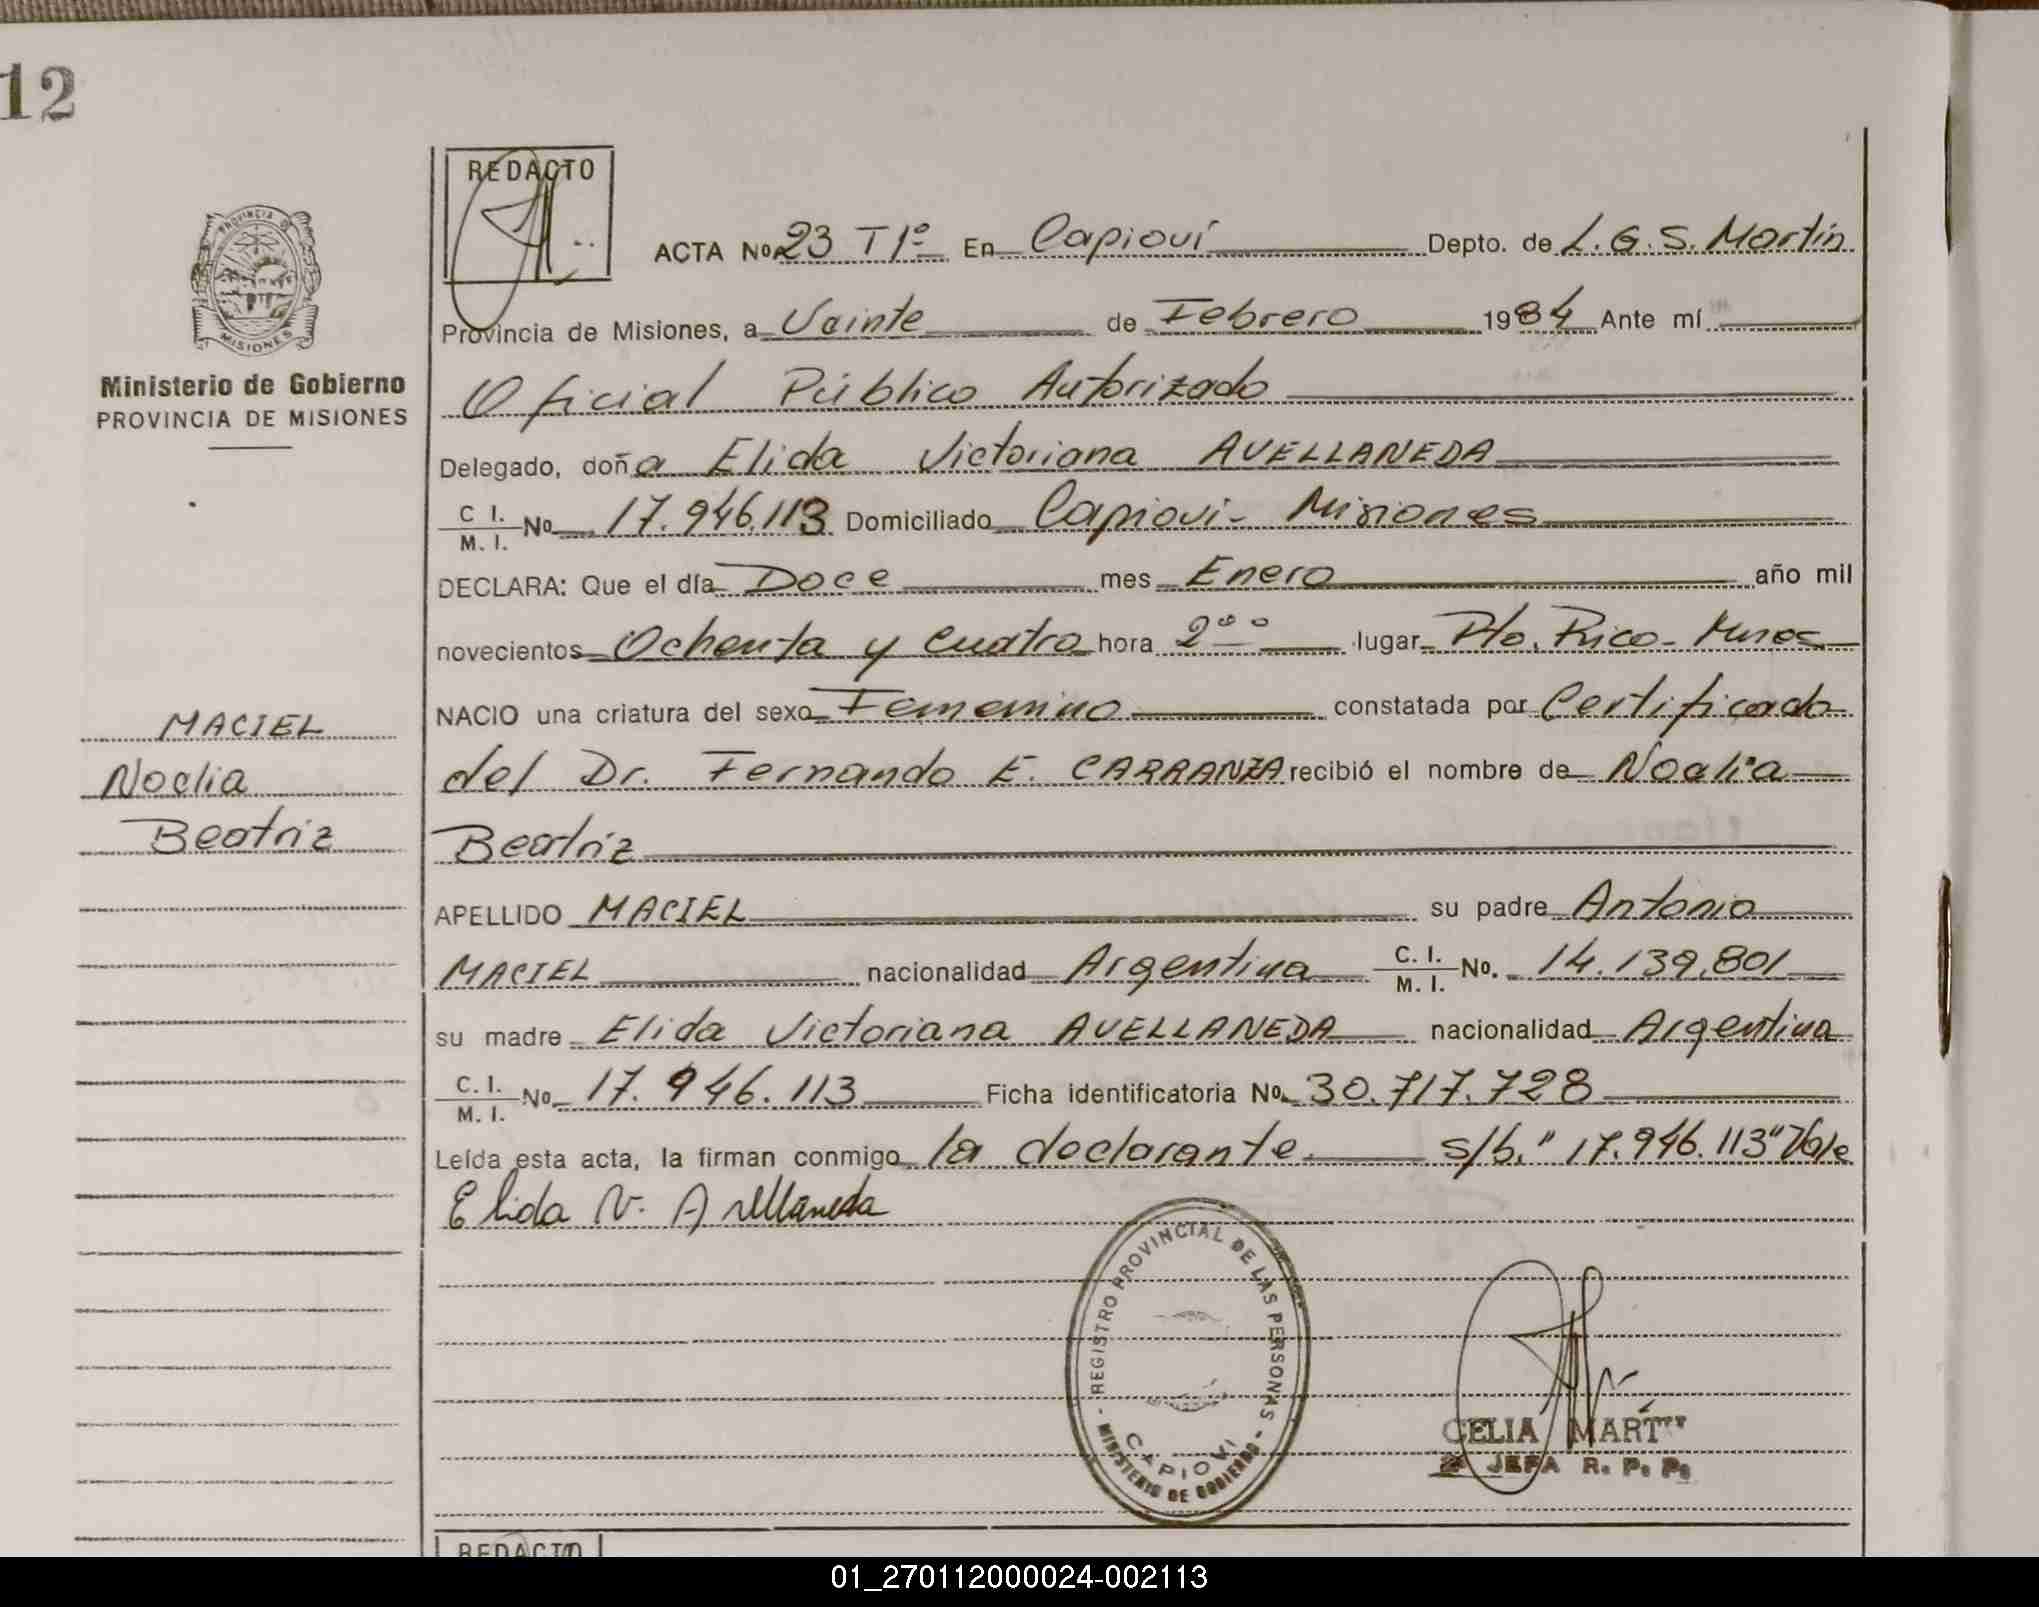 12
REDACTO
ACTA No. 23 T1º En Capioví Depto. de L.G.S. Martín
Provincia de Misiones, a Veinte de Febrero 1984 Ante mí
Oficial Público Autorizado
Delegado, doña Elida Victoriana AVELLANEDA
C I. M. I. No 17.946.113 Domiciliado Capiovi- Misiones
PROVINCIA DE MISIONES
Ministerio de Gobierno
PROVINCIA DE MISIONES
DECLARA: Que el día Doce mes Enero año mil
novecientos Ochenta y Cuatro hora 2°° lugar Pto. Rico- Mnes
NACIO una criatura del sexo Femenino constatada por Certificado
del Dr. Fernando E. CARRANZA recibió el nombre de Noelia
Beatriz
MACIEL
Noelia
Beatriz
APELLIDO MACIEL su padre Antonio
MACIEL nacionalidad Argentina C. I. M. I. No. 14.139.801
su madre Elida Victoriana AVELLANEDA nacionalidad Argentina
C. I. M. I. No. 17.946.113 Ficha identificatoria No. 30.717.728
Leída esta acta, la firman conmigo la declarante. s/b. "17.946.113" Vale
Elida V. Avellaneda
- REGISTRO PROVINCIAL DE LAS PERSONAS -
CAPIOVI
MINISTERIO DE GOBIERNO
CELIA
JEFA R. P. P.
REDACTO
01_270112000024-002113